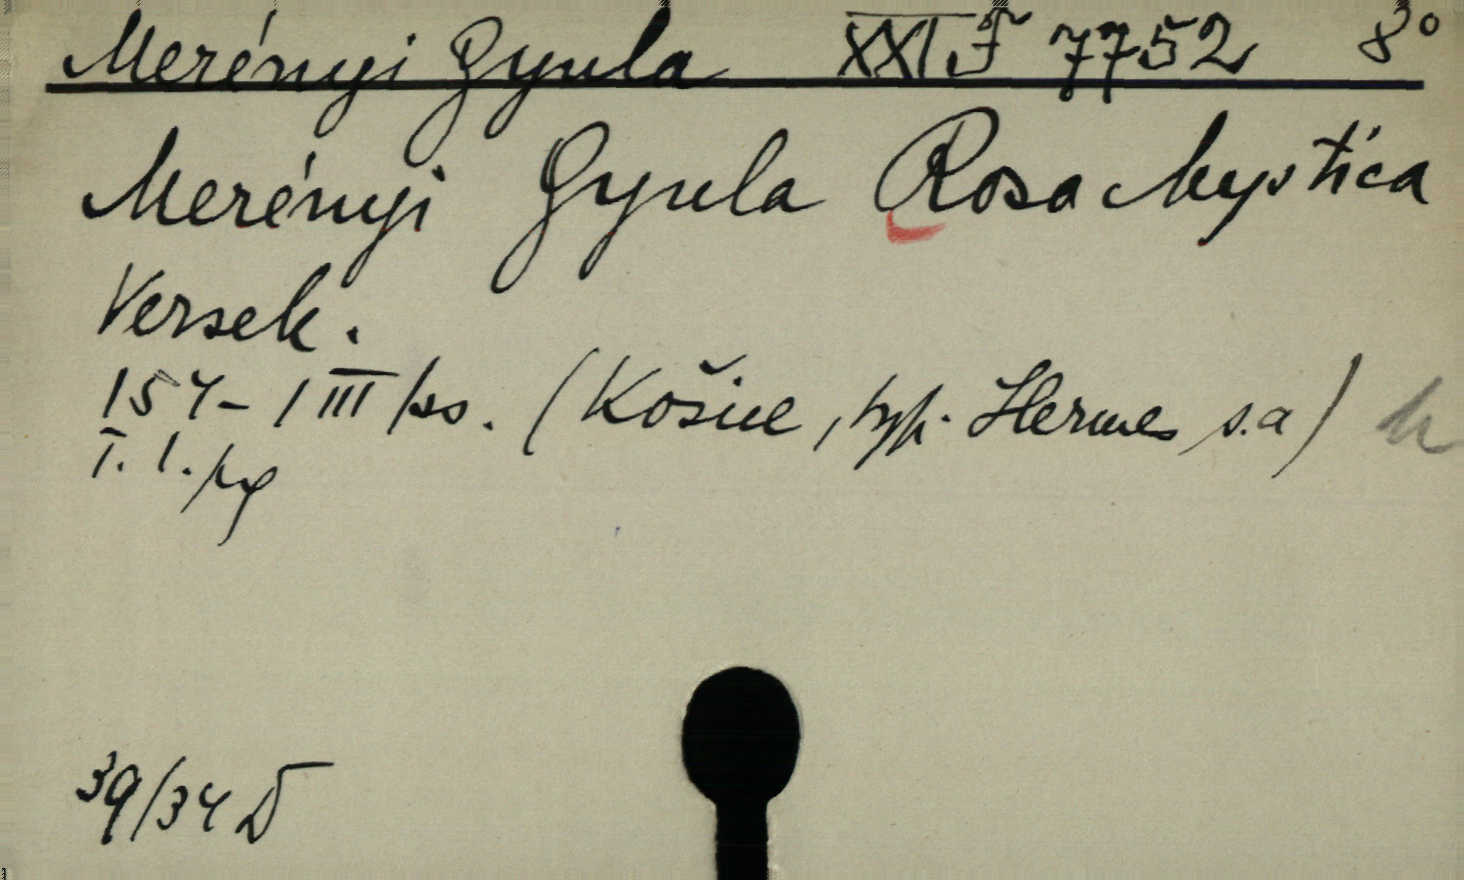 Merényi Gyula XXI F 7752 8°
Merényi Gyula Rosa Mystica
Versek.
154-1 III ks. (Košice, typ. Hermes s.a)
I. 1.
39/34 D